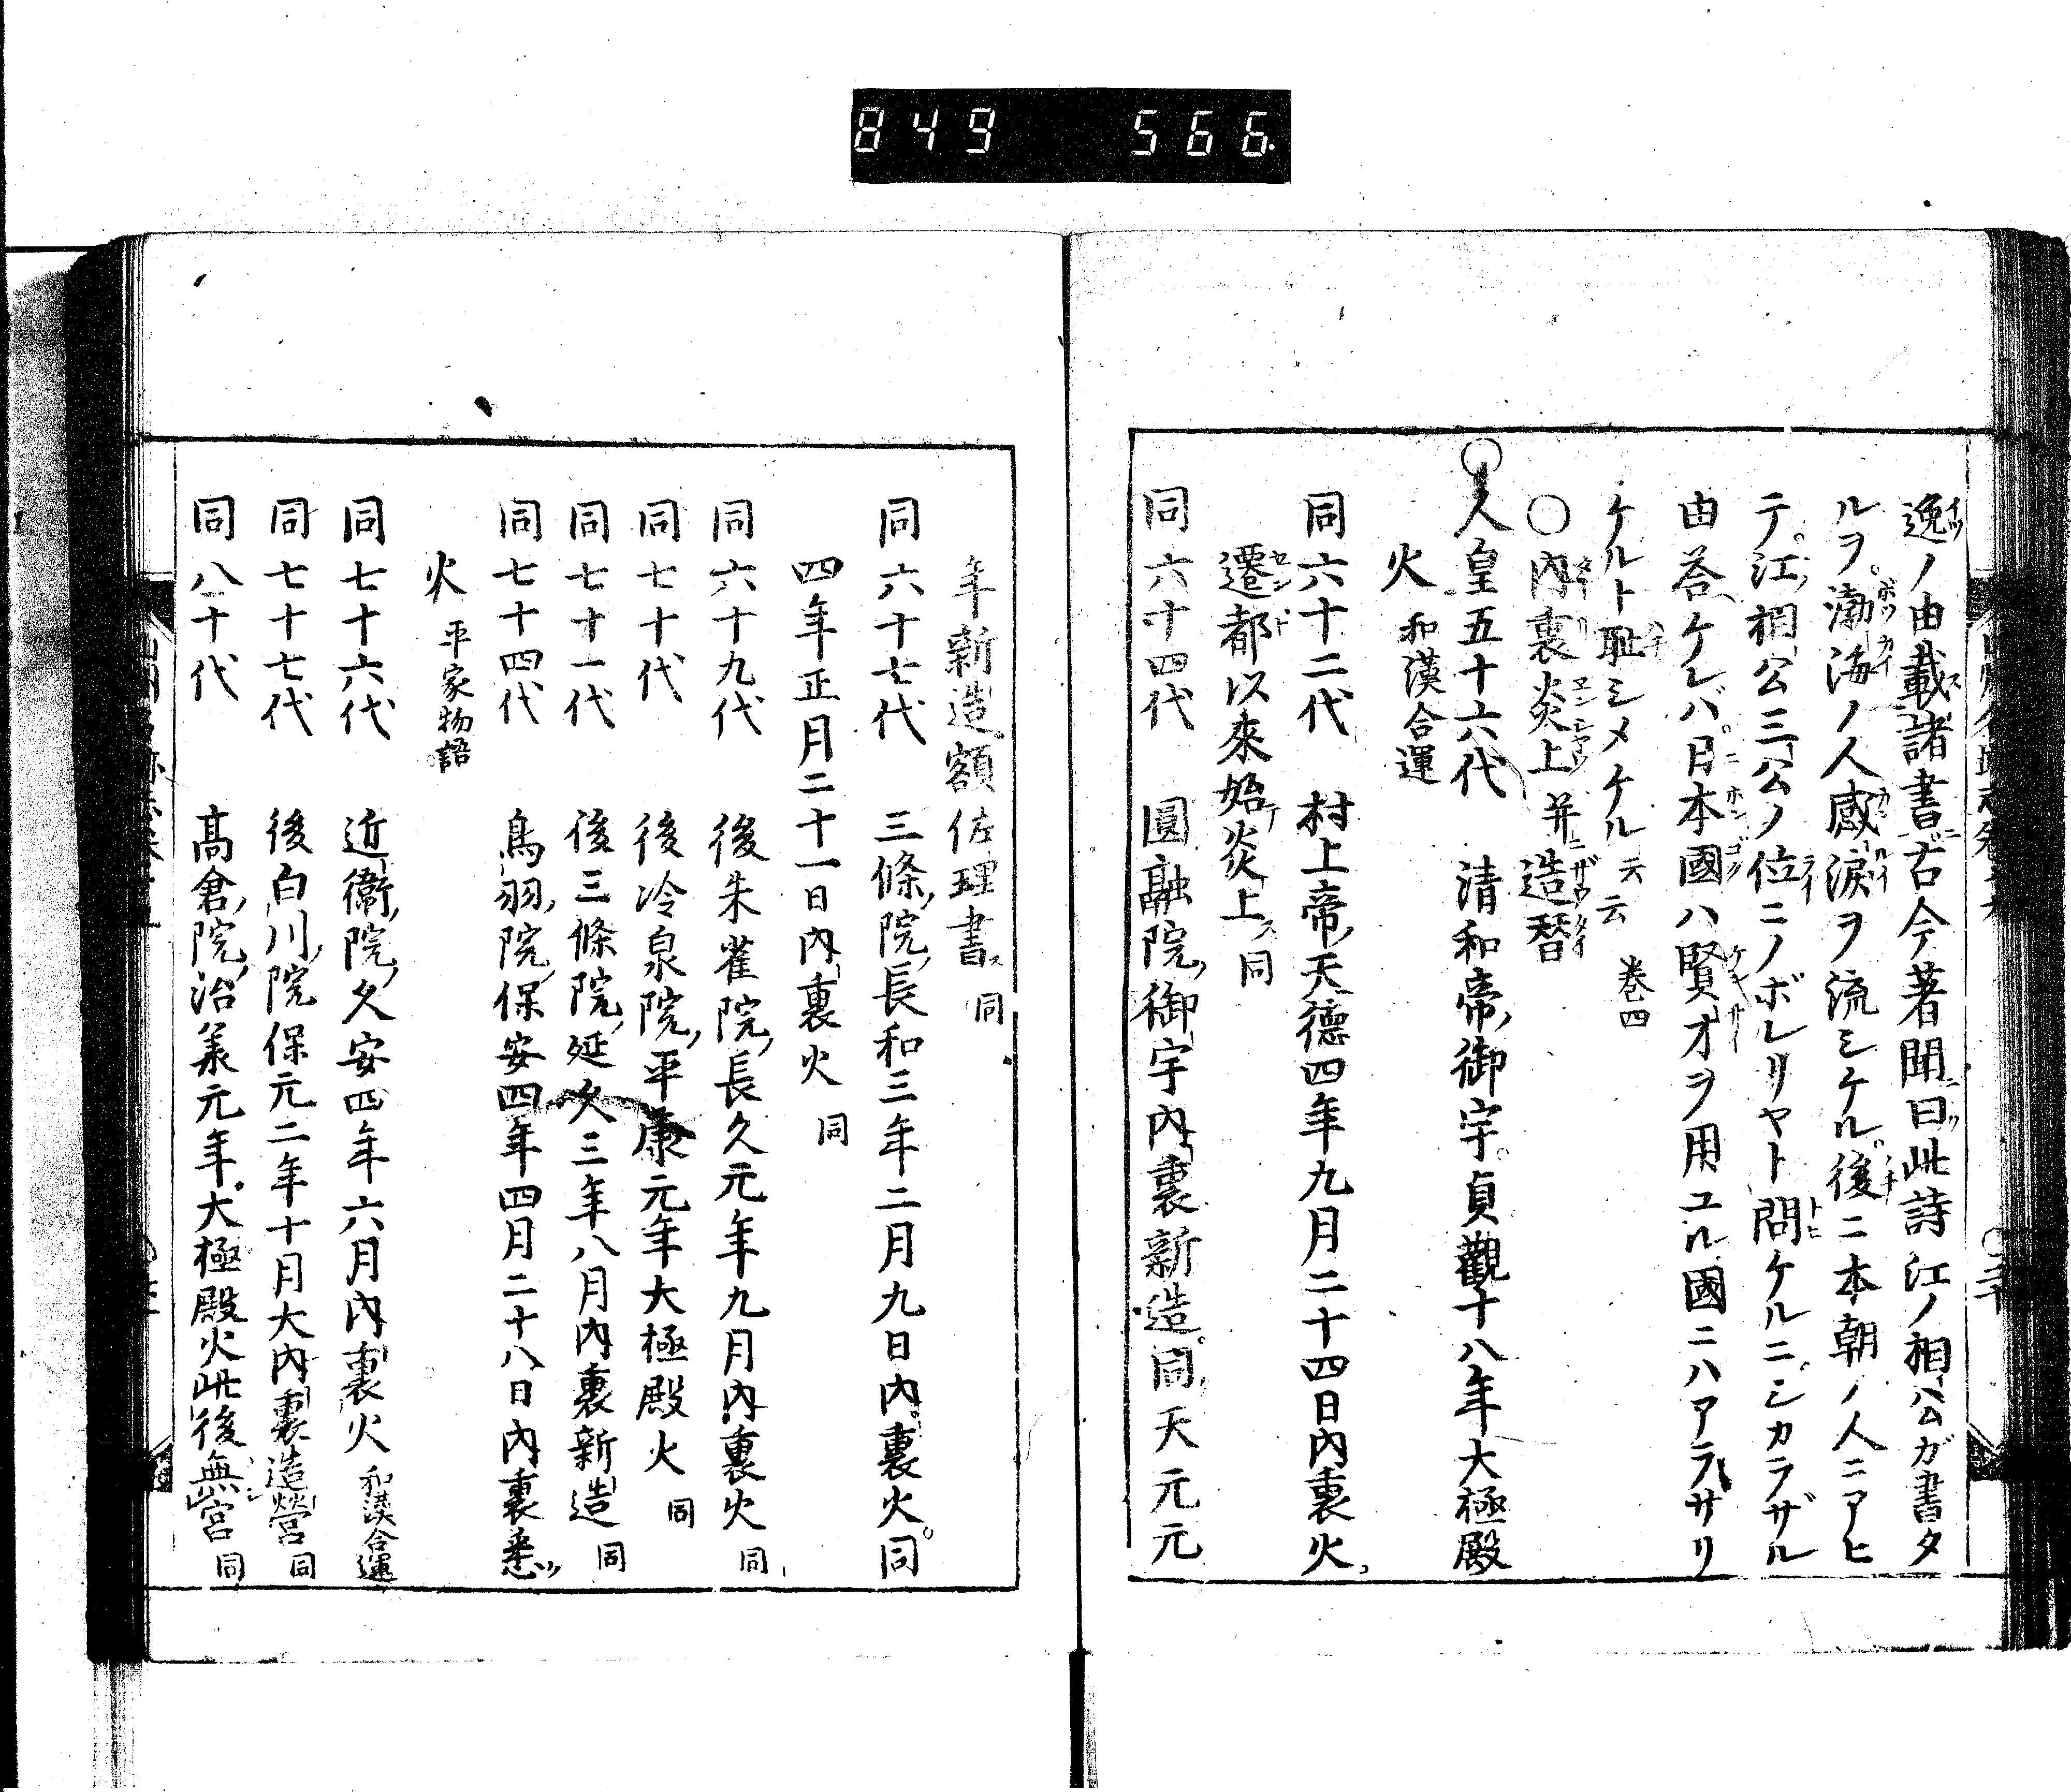 849 566
逸ノ由載諸書古今著聞曰此詩江ノ相公ガ書タ
ルヲ渤海ノ人感涙ヲ流シケル後ニ本朝ノ人ニアヒ
テ江相公三公ノ位ニノボレリヤト問ケルニシカラザル
由荅ケレバ日本國ハ賢才ヲ用ユル國ニハアラザリ
ケルト耻シメケル云云 巻四
○內裏炎上并造替
○人皇五十六代 清和帝御宇貞觀十八年大極殿
火 和漢合運
同六十二代 村上帝天德四年九月二十四日內裏火
遷都以來始炎上ス同
同六十四代 圓融院御宇內裏新造同天元元
年新造額佐理書ス同
同六十七代 三條院長和三年二月九日內裏火同
四年正月二十一日內裏火 同
同六十九代 後朱雀院長久元年九月內裏火 同
同七十代 後冷泉院平康元年大極殿火 同
同七十一代 後三條院延久三年八月內裏新造 同
同七十四代 鳥羽院保安四年四月二十八日內裏悉
火 平家物語
同七十六代 近衞院久安四年六月內裏火 和漢合運
同七十七代 後白川院保元二年十月大內裏造營 同
同八十代 髙倉院治美元年大極殿火此後無宮 同